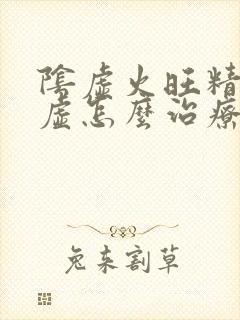 陰虛火旺精
虛怎麼治療
兔来割草